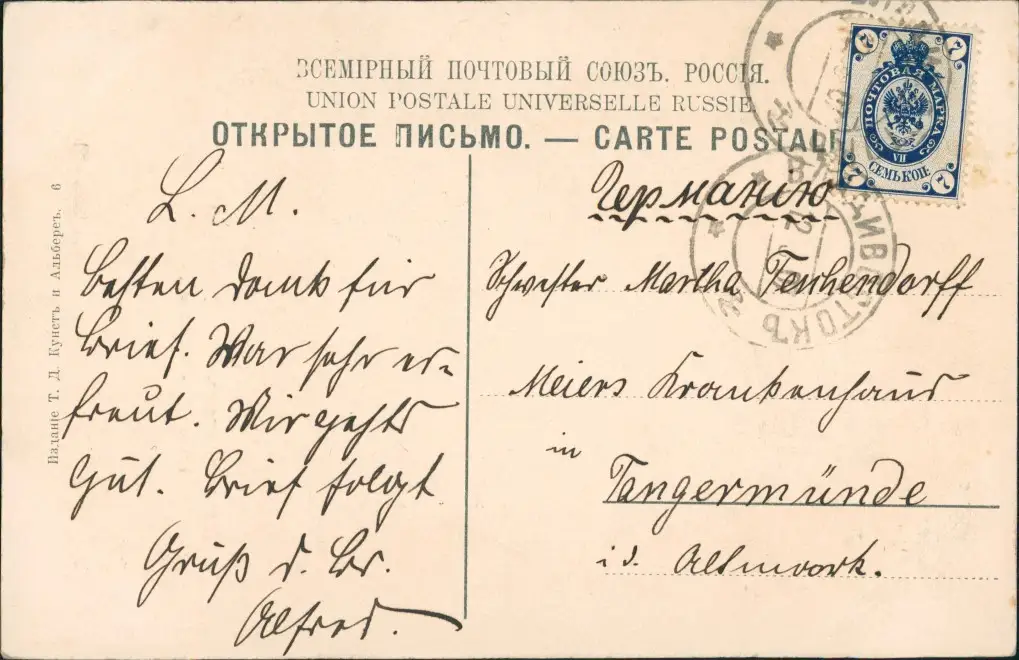 ВСЕМІРНЫЙ ПОЧТОВЫЙ СОЮЗЪ. РОССІЯ.
UNION POSTALE UNIVERSELLE RUSSIE.
ОТКРЫТОЕ ПИСЬМО. — CARTE POSTALE
7 7
ПОЧТОВАЯ МАРКА
VII
СЕМЬ КОП.
7 7
ВЛАДИВОСТОКЪ
Изданіе Т. Д. Кунстъ и Альберсъ. 6
L. M.
Besten Dank für
Brief. War sehr er-
freut. Mir gehts
gut. Brief folgt
Gruß d. Br.
Alfred.
Германію
Schwester Martha Teichendorff
Meiers Krankenhaus
in
Tangermünde
i d. Altmark.